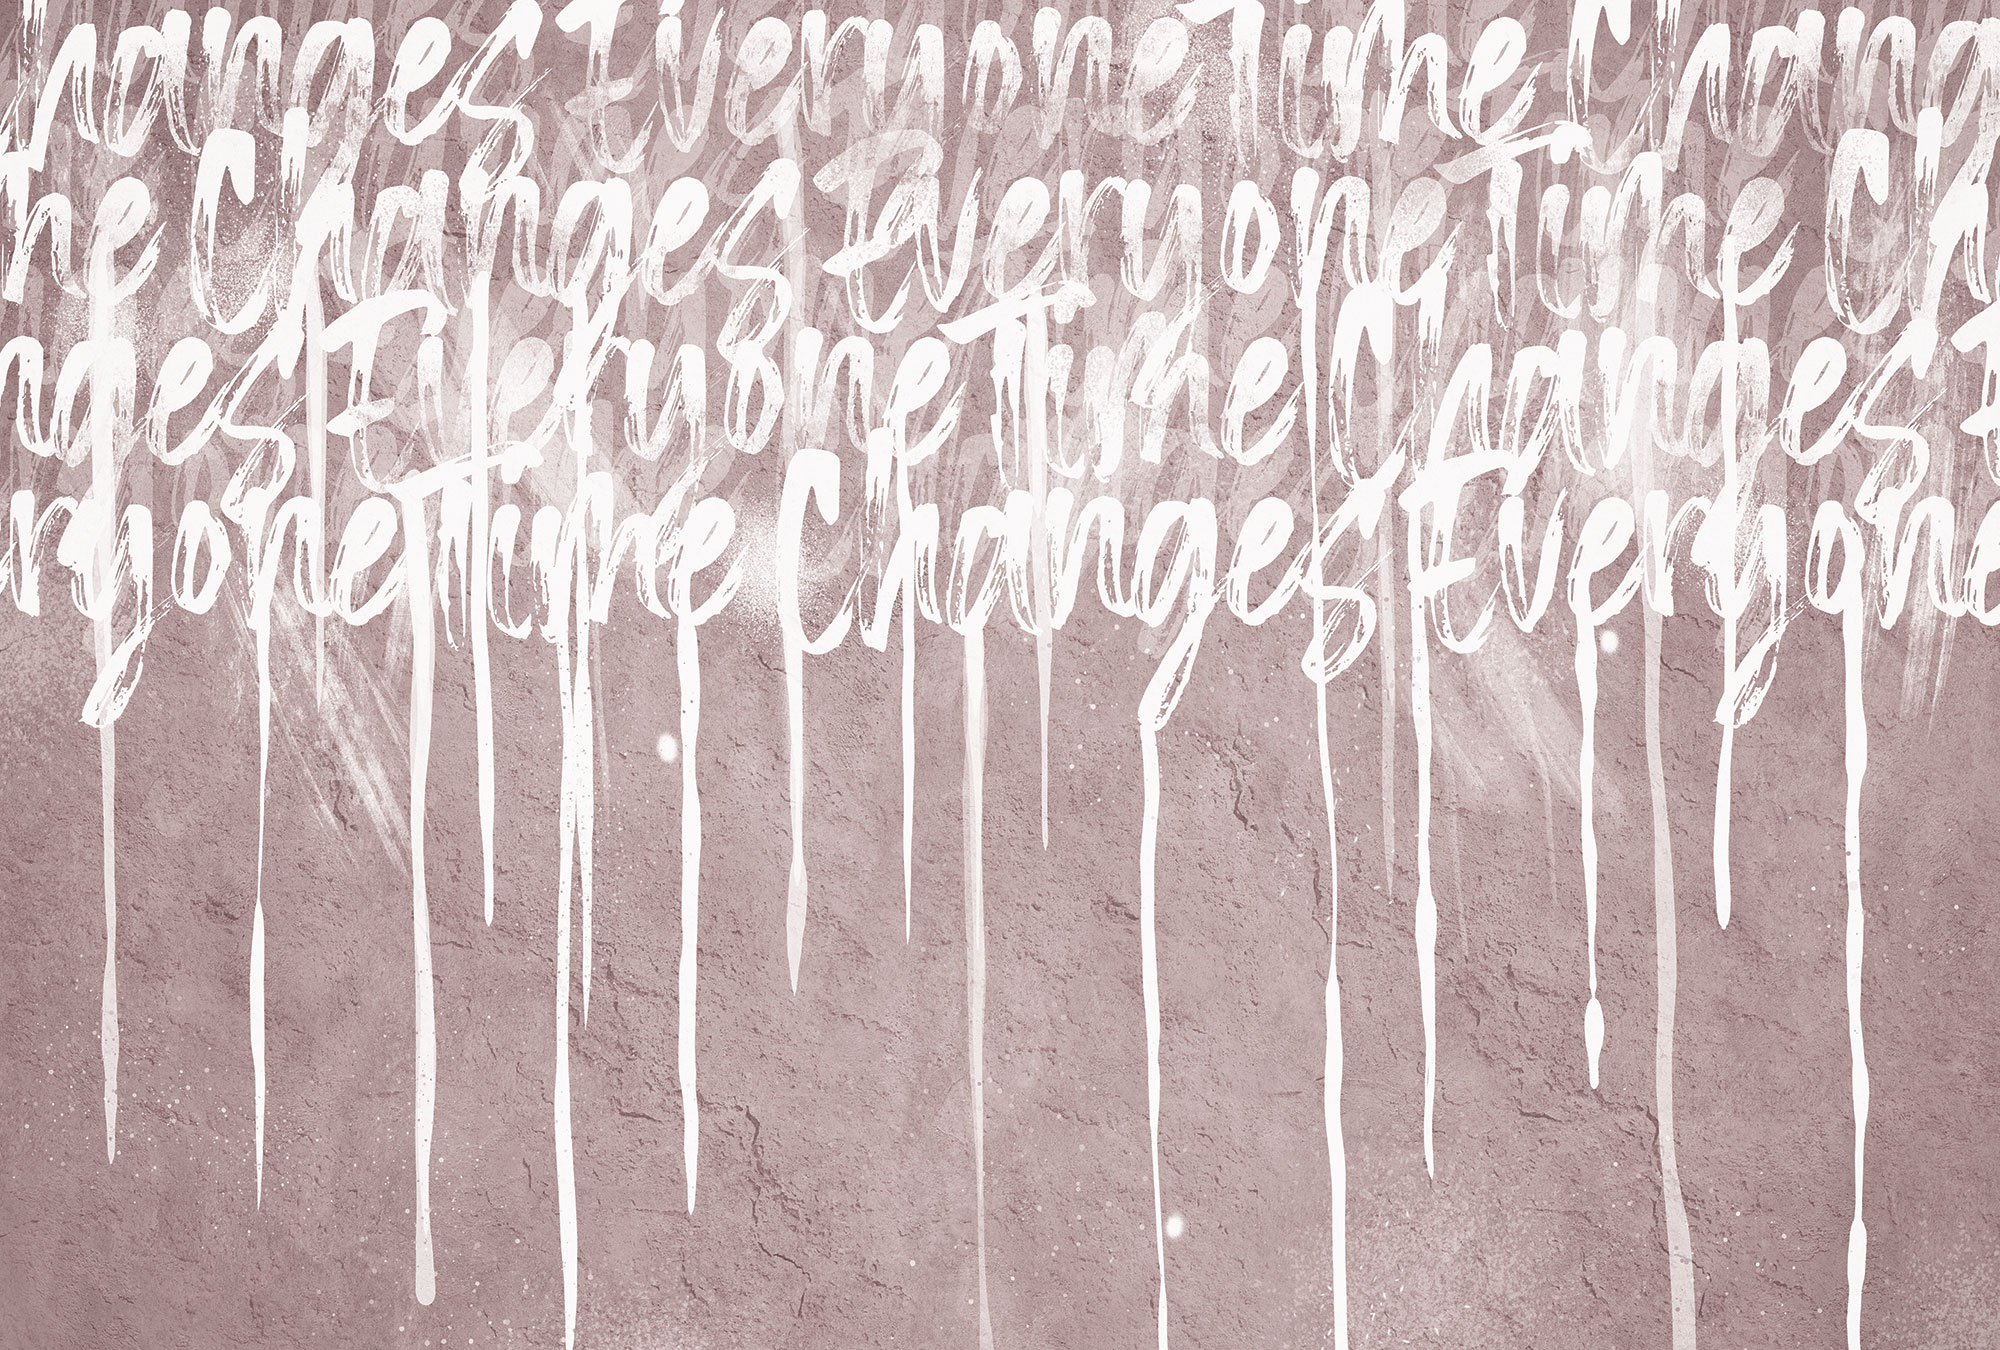 hanges Everyone Time Chang
me Changes Everyone Time Cha
nges Everyone Time Changes E
ryone Time Changes Everyone